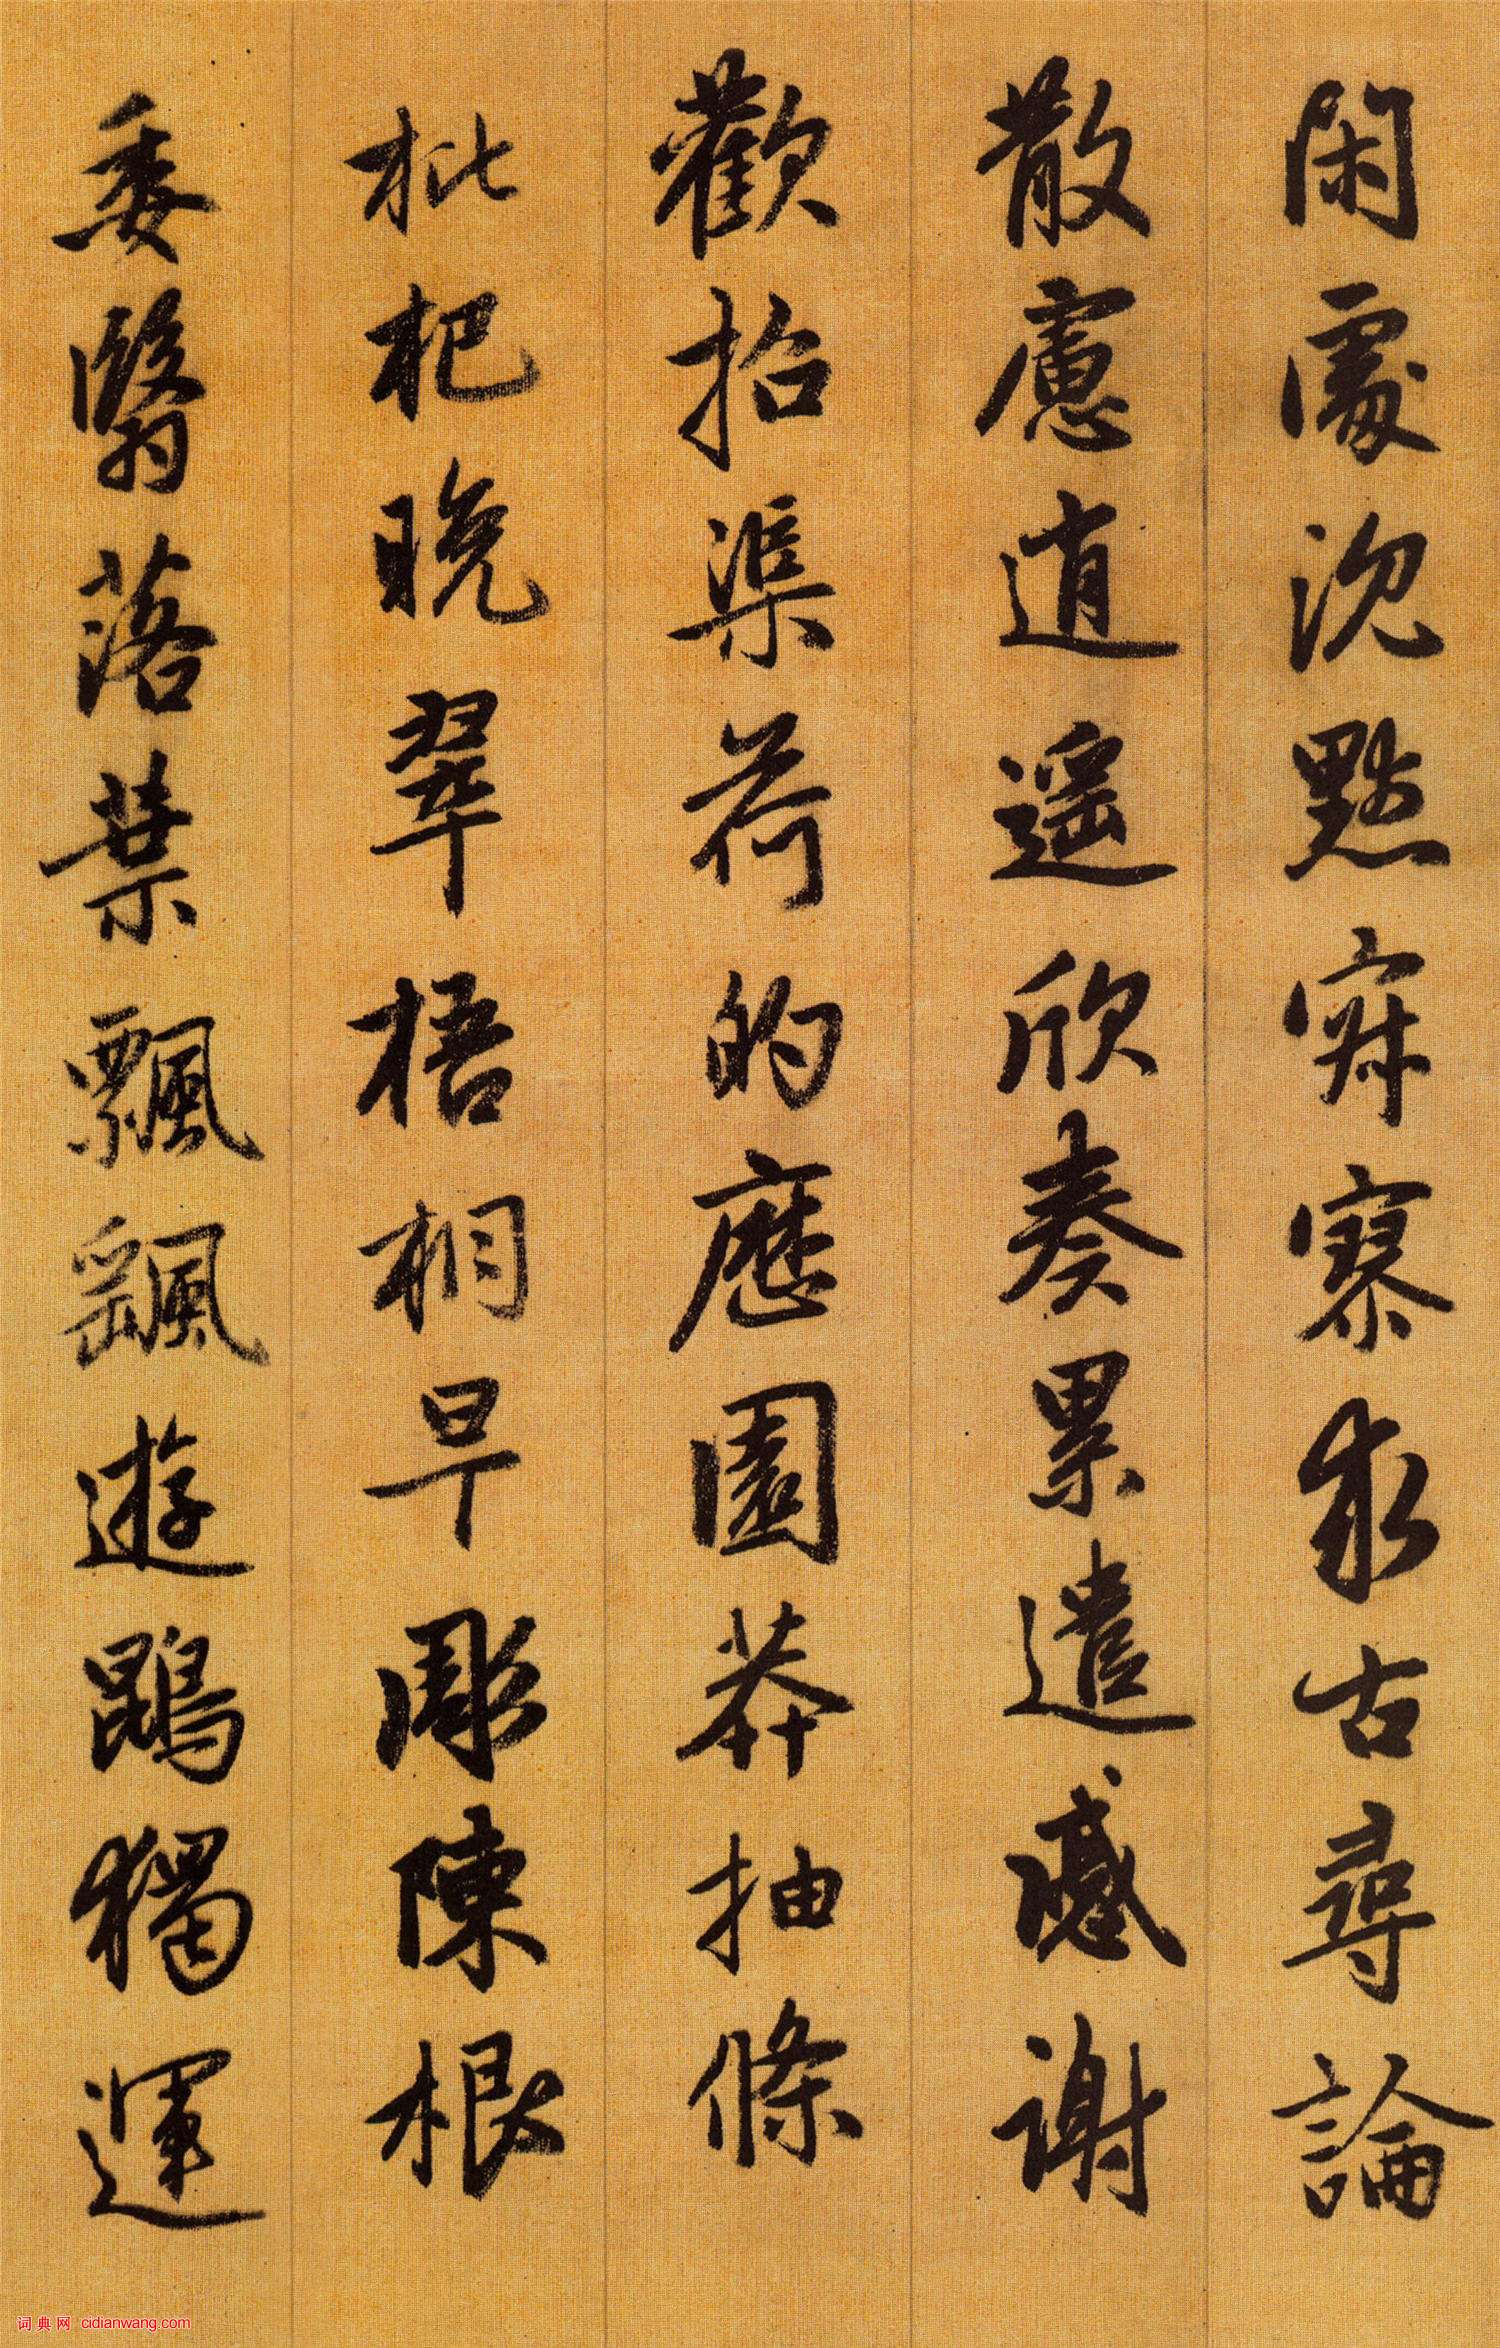 閑處沈默寂寥求古尋論
散慮逍遙欣奏累遣慼謝
歡招渠荷的歷園莽抽條
枇杷晚翠梧桐早彫陳根
委翳落葉飄颻遊鵾獨運
词典网 cidianwang.com